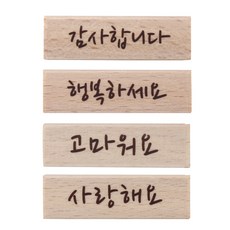 감사합니다
행복하세요
고마워요
사랑해요